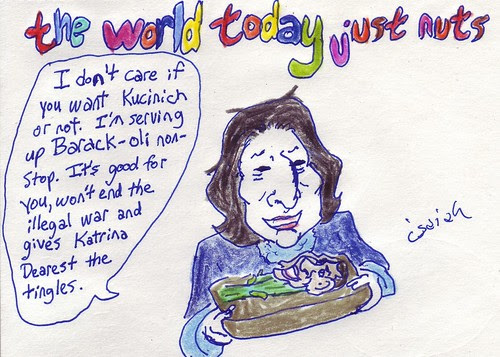 the world today just nuts
I don't care if
you want Kucinich
or not. I'm serving
up Barack-oli non-
stop. It's good for
you, won't end the
illegal war and
gives Katrina
Dearest the
tingles.
isaiah